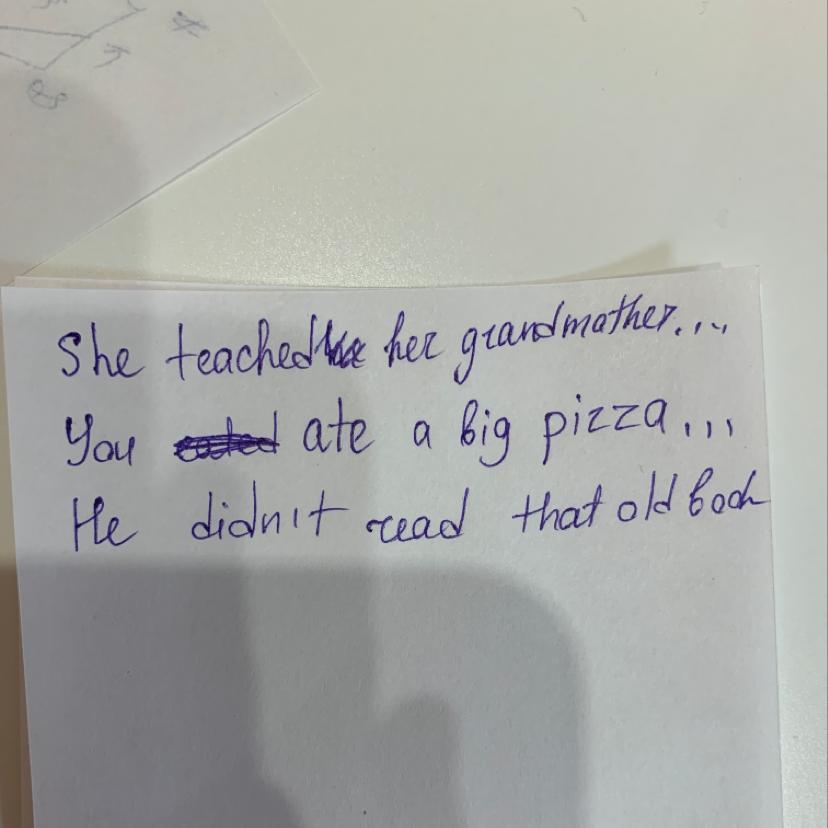 She teached her grandmather....
You ate a big pizza...
He didn't read that old book